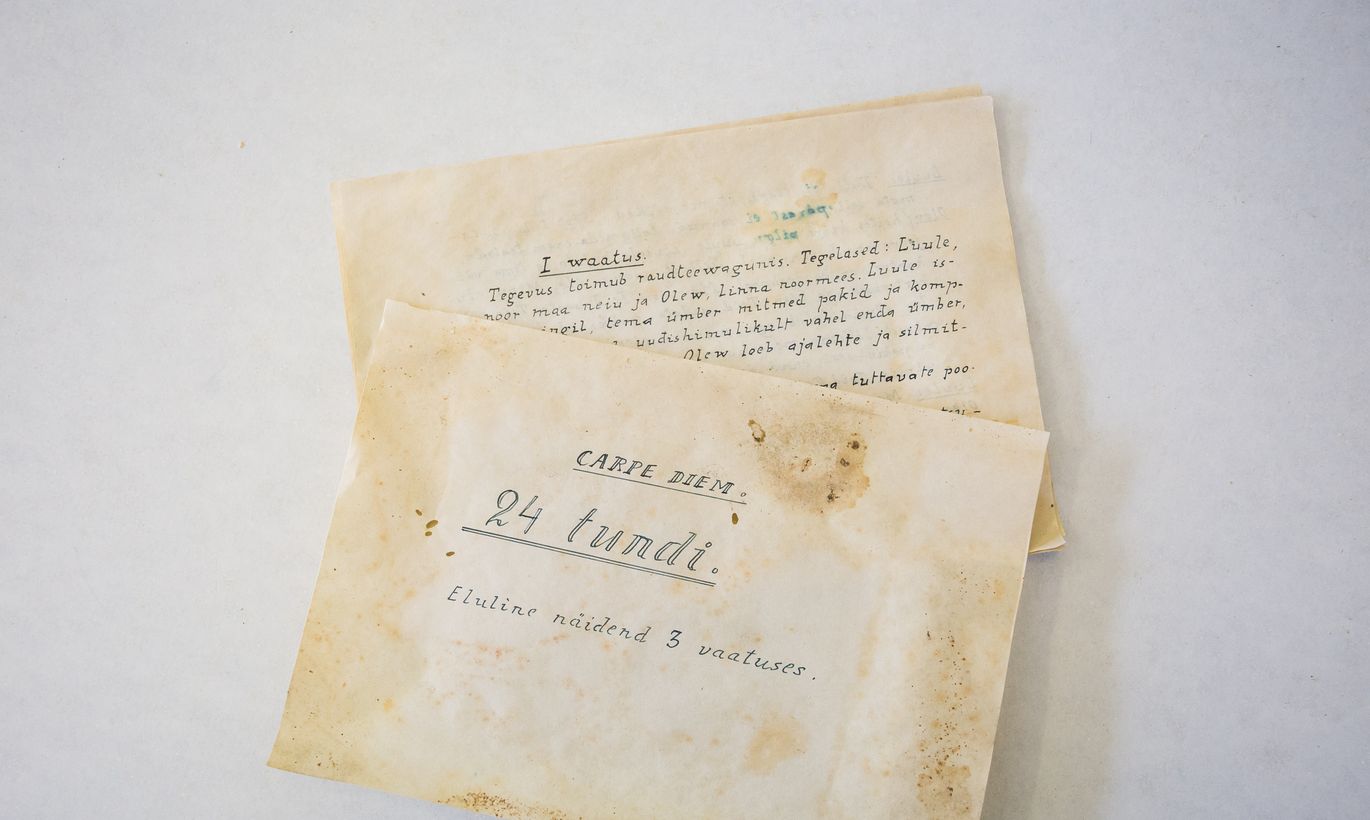 I waatus.
Tegevus toimub raudteewagunis. Tegelased: Luule,
noor maa neiu ja Olew, linna noormees. Luule is-
tema ümber mitmed pakid ja komp-
uudishimulikult vahel enda ümber,
Olew loeb ajalehte ja silmit-
tuttavate poo-
CARPE DIEM.
24 tundi.
Eluline näidend 3 vaatuses.